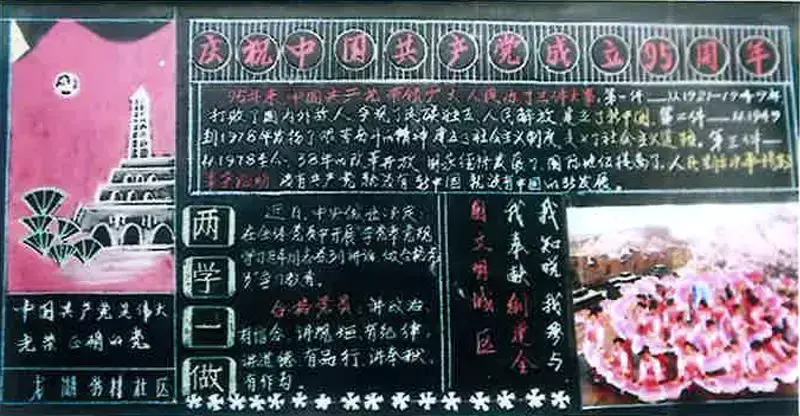 庆祝中国共产党成立95周年
95年来 中国共产党带领广大人民办了三件大事。第一件——从1921-1949年
打败了国内外敌人 实现了民族独立 人民解放 建立了新中国。第二件——从1949
到1978年发扬了 精神 建立了社会主义制度 社会主义道路。第三件——
从1978年 38年的改革开放 国家经济发展了 国际地位提高了。人民生活
没有共产党就没有新中国 就没有中国的 发展。
两学一做
近日,中央
在全体党员中开展"学党章党规、
学习 系列讲话,做合格
党员"
合格党员:讲政治、
有信念、讲规矩、有纪律,
讲道德、有品行、讲奉献、
有作为。
我知晓 我参与
我奉献 创建全
国文明城区
中国共产党是伟大
光荣正确的党
村社区